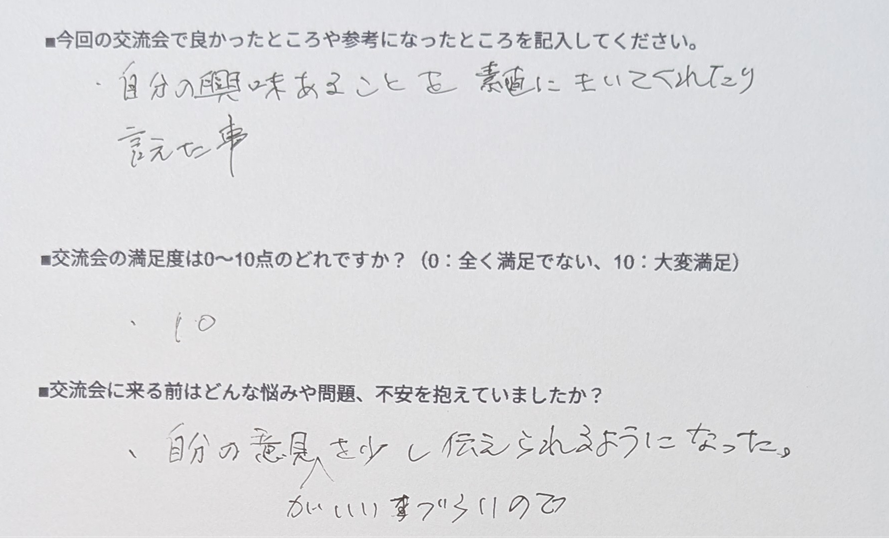 ■今回の交流会で良かったところや参考になったところを記入してください。
・自分の興味あることを素直にきいてくれたり
言えた事
■交流会の満足度は0〜10点のどれですか？（0：全く満足でない、10：大変満足）
・10
■交流会に来る前はどんな悩みや問題、不安を抱えていましたか？
、自分の意見を少し伝えられるようになった。
がいいづらいので